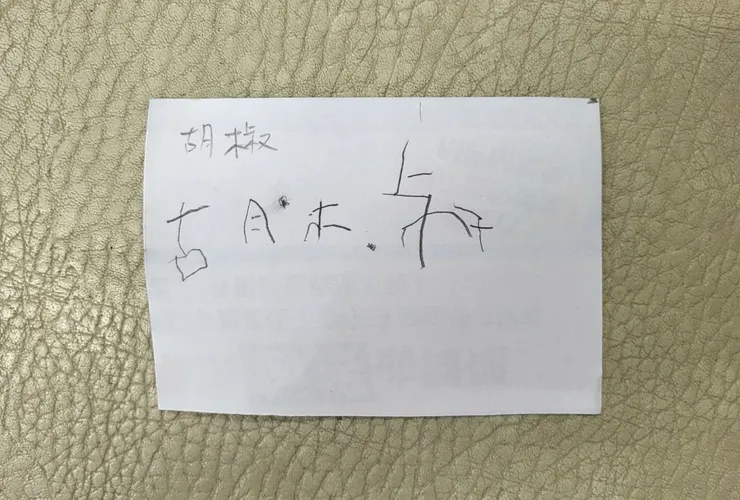 胡椒
古月木叔